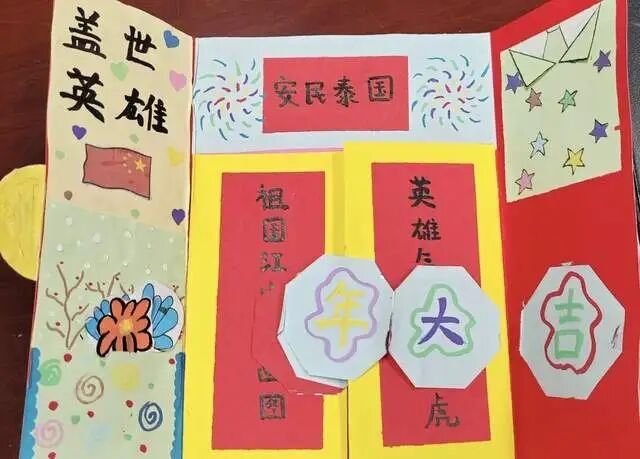 盖世
英雄
安民泰国
祖国江
图
英雄
虎
年大吉